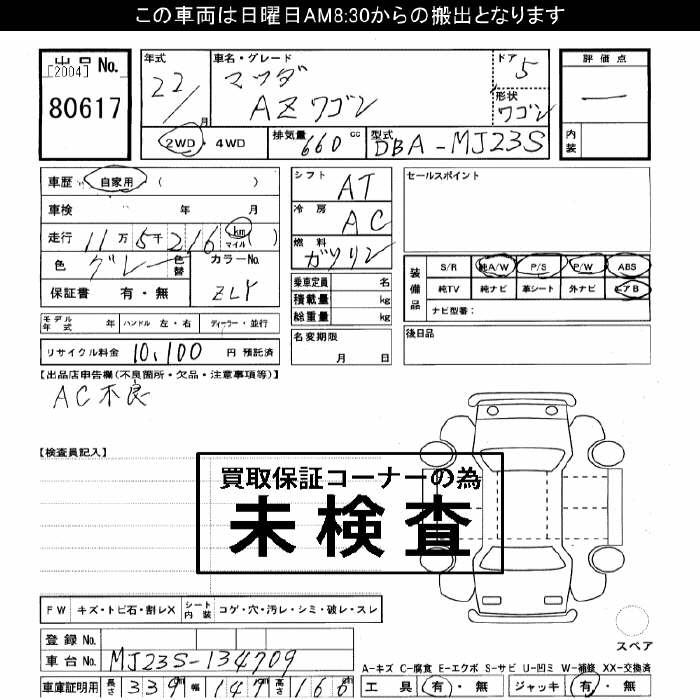 この車両は日曜日AM8:30からの搬出となります
出品 No.
[2004]
80617
年式 22/ 月
車名・グレード マツダ
AZワゴン
ドア 5
形状 ワゴン
評価点
―
内装
2WD・4WD
排気量 660 cc
型式 DBA-MJ23S
車歴 自家用 ( )
車検 年 月
走行 11万5千216 km マイル ( )
色 グレー 色替
カラーNo. ZLY
保証書 有・無
シフト AT
冷房 AC
燃料 ガソリン
乗車定員 名
積載量 kg
総重量 kg
セールスポイント
装備品
S/R 純A/W P/S P/W ABS
純TV 純ナビ 革シート 外ナビ エアB
ナビ型番:
モデル年式 年 ハンドル 左・右 ディーラー・並行
名変期限
月 日
後日品
リサイクル料金 10,100 円 預託済
【出品店申告欄(不良箇所・欠品・注意事項等)】
AC不良
【検査員記入】
買取保証コーナーの為
未検査
FW キズ・トビ石・割レX シート内装 コゲ・穴・汚レ・シミ・破レ・スレ
登録No.
車台No. MJ23S-134709
車庫証明用 長さ 339 幅 147 高さ 166
スペア
A-キズ C-腐食 E-エクボ S-サビ U-凹ミ W-補修 XX-交換済
工具 有・無 ジャッキ 有・無